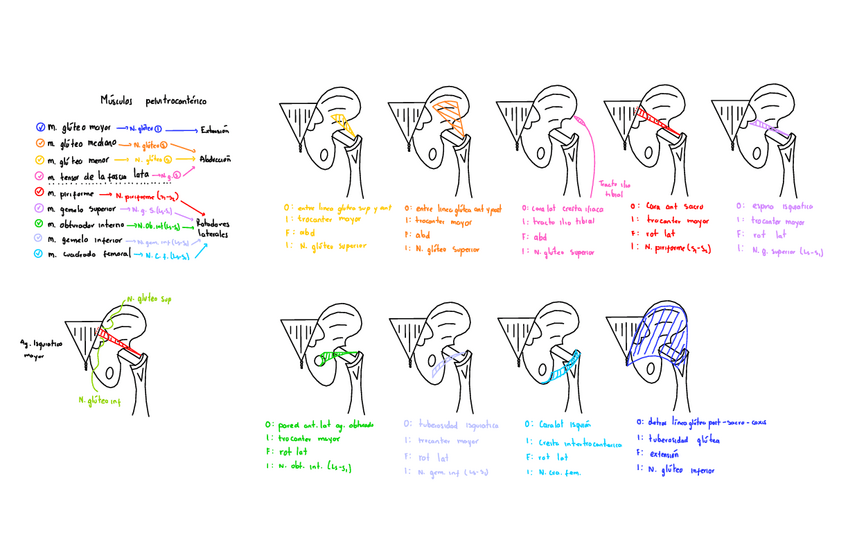 Músculos pelvitrocantérico
m. glúteo mayor → N. glúteo ① → Extensión
m. glúteo mediano → N. glúteo ②
m. glúteo menor → N. glúteo ② → Abducción
m. tensor de la fascia lata → N.g. ②
m. piriforme → N. piriforme (S1-S2)
m. gemelo superior → N. g. S. (L5-S1)
m. obturador interno → N. ob. int (L5-S1) → Rotadores laterales
m. gemelo inferior → N. gem. inf (L5-S1)
m. cuadrado femoral → N. c. f. (L5-S1)
O: entre linea glútea sup y ant
I: trocanter mayor
F: abd
I: N. glúteo superior
O: entre linea glútea ant y post
I: trocanter mayor
F: abd
I: N. glúteo superior
Tracto ilio tibial
O: cara lat cresta iliaca
I: tracto ilio tibial
F: abd
I: N. glúteo superior
O: Cara ant sacro
I: trocanter mayor
F: rot lat
I: N. piriforme (S1-S2)
O: espina isquiatica
I: trocanter mayor
F: rot lat
I: N. g. superior (L5-S1)
N. glúteo sup
Ag. isquiatico mayor
N. glúteo inf
O: pared ant. lat ag. obturado
I: trocanter mayor
F: rot lat
I: N. obt. int. (L5-S1)
O: tuberosidad isquiatica
I: trocanter mayor
F: rot lat
I: N. gem inf (L5-S1)
O: Cara lat isquion
I: Cresta intertrocanterica
F: rot lat
I: N. cua. fem.
O: detras linea glútea post-sacro-coxis
I: tuberosidad glútea
F: extensión
I: N. glúteo inferior